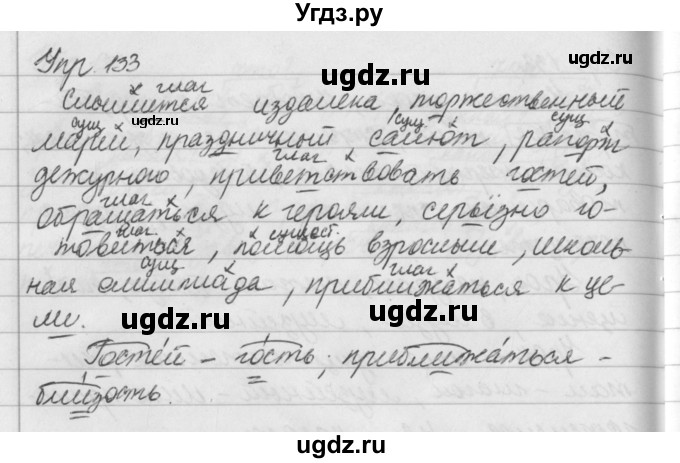 Угдз.ру
Упр. 133
глаг
ugdz.ru
ugdz.ru
Слышится издалека, торжественный
сущ
ugdz.ru
сущ
сущ
марш, праздничный салют, рапорт
глаг
дежурного, приветствовать гостей,
глаг
обращаться к героям, серьёзно го-
глаг
существ.
товиться, помощь взрослым, школь-
сущ
глаг
ная олимпиада, приближаться к це-
ли.
ugdz.ru
ugdz.ru
Гостей – гость, приближаться –
близость.
ugdz.ru
ugdz.ru